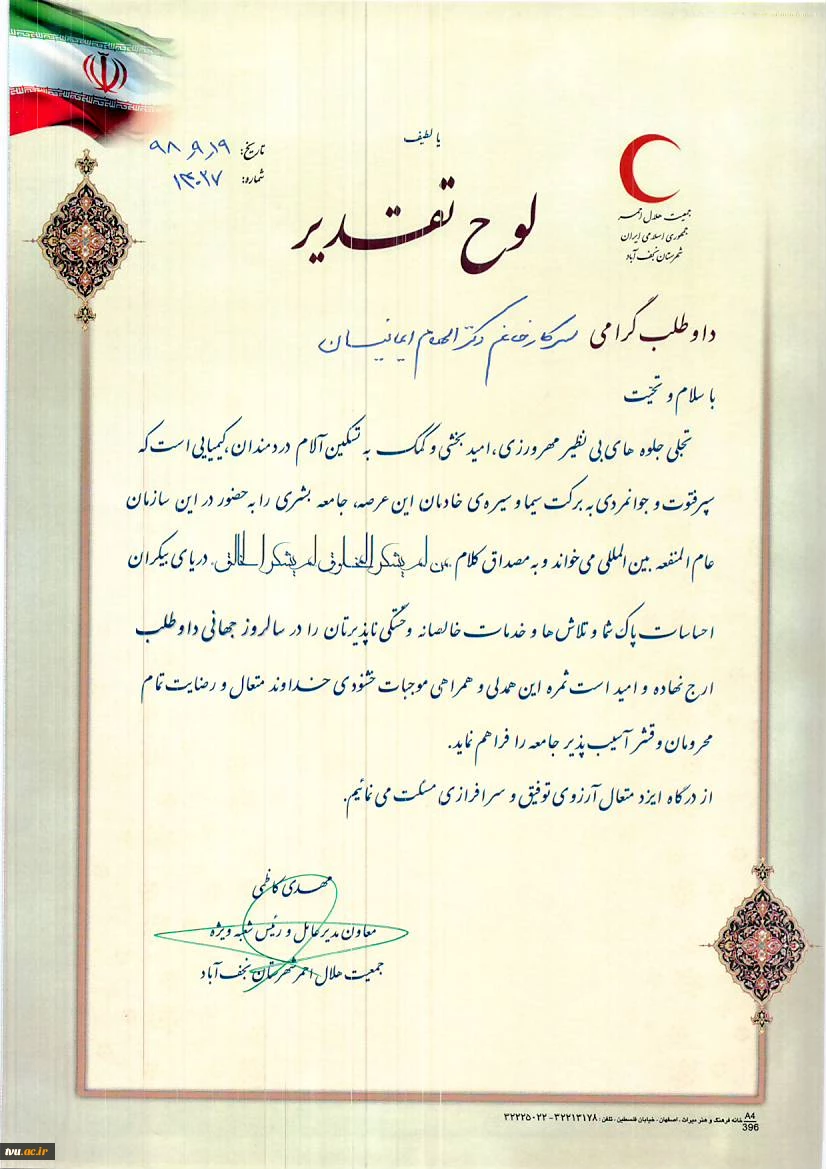 یا لطیف
تاریخ: ۹۸,۹,۱۹
شماره: ۱۳۰۲۷
جمعیت هلال احمر
جمهوری اسلامی ایران
شهرستان نجف آباد
لوح تقدیر
داوطلب گرامی سرکار خانم دکتر الهام ایمانیان
با سلام و تحیت
تجلی جلوه های بی نظیر مهرورزی، امید بخشی و کمک به تسکین آلام دردمندان، کیمیایی است که
سپر فتوت و جوانمردی به برکت سیما و سیره‌ی خادمان این عرصه، جامعه بشری را به حضور در این سازمان
عام المنفعه بین المللی می‌خواند و به مصداق کلام من لم یشکر المخلوق لم یشکر الخالق، دریای بیکران
احساسات پاک شما و تلاش ها و خدمات خالصانه و خستگی ناپذیرتان را در سالروز جهانی داوطلب
ارج نهاده و امید است ثمره این همدلی و همراهی موجبات خشنودی خداوند متعال و رضایت تمام
محرومان و قشر آسیب پذیر جامعه را فراهم نماید.
از درگاه ایزد متعال آرزوی توفیق و سرافرازی مسئلت می نمائیم.
مهدی کاظمی
معاون مدیرعامل و رئیس شعبه ویژه
جمعیت هلال احمر شهرستان نجف آباد
A4
396
خانه فرهنگ و هنر میراث ، اصفهان ، خیابان فلسطین ، تلفن : ۳۲۲۱۳۱۷۸-۳۲۲۲۵۰۲۲
tvu.ac.ir